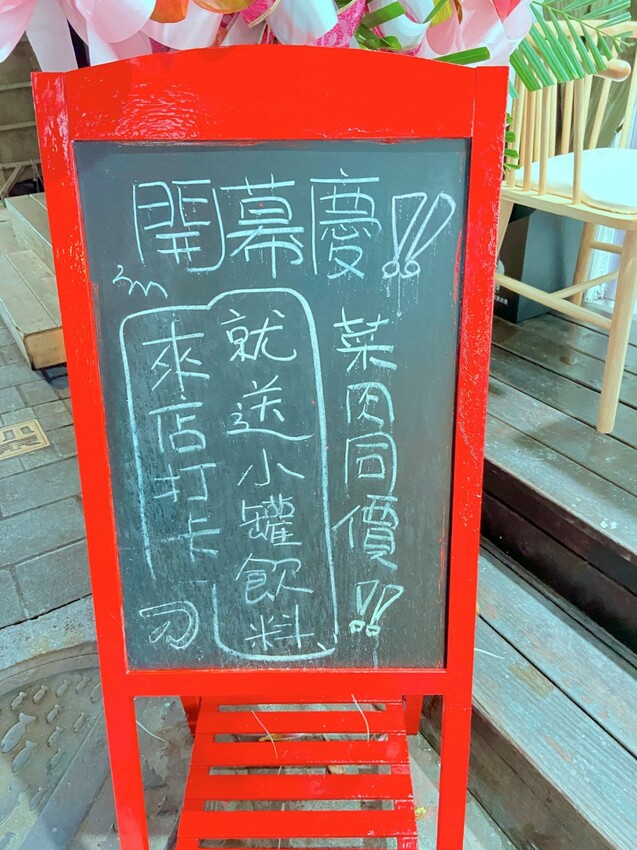 開幕慶!!
菜肉同價!!
來店打卡
就送小罐飲料